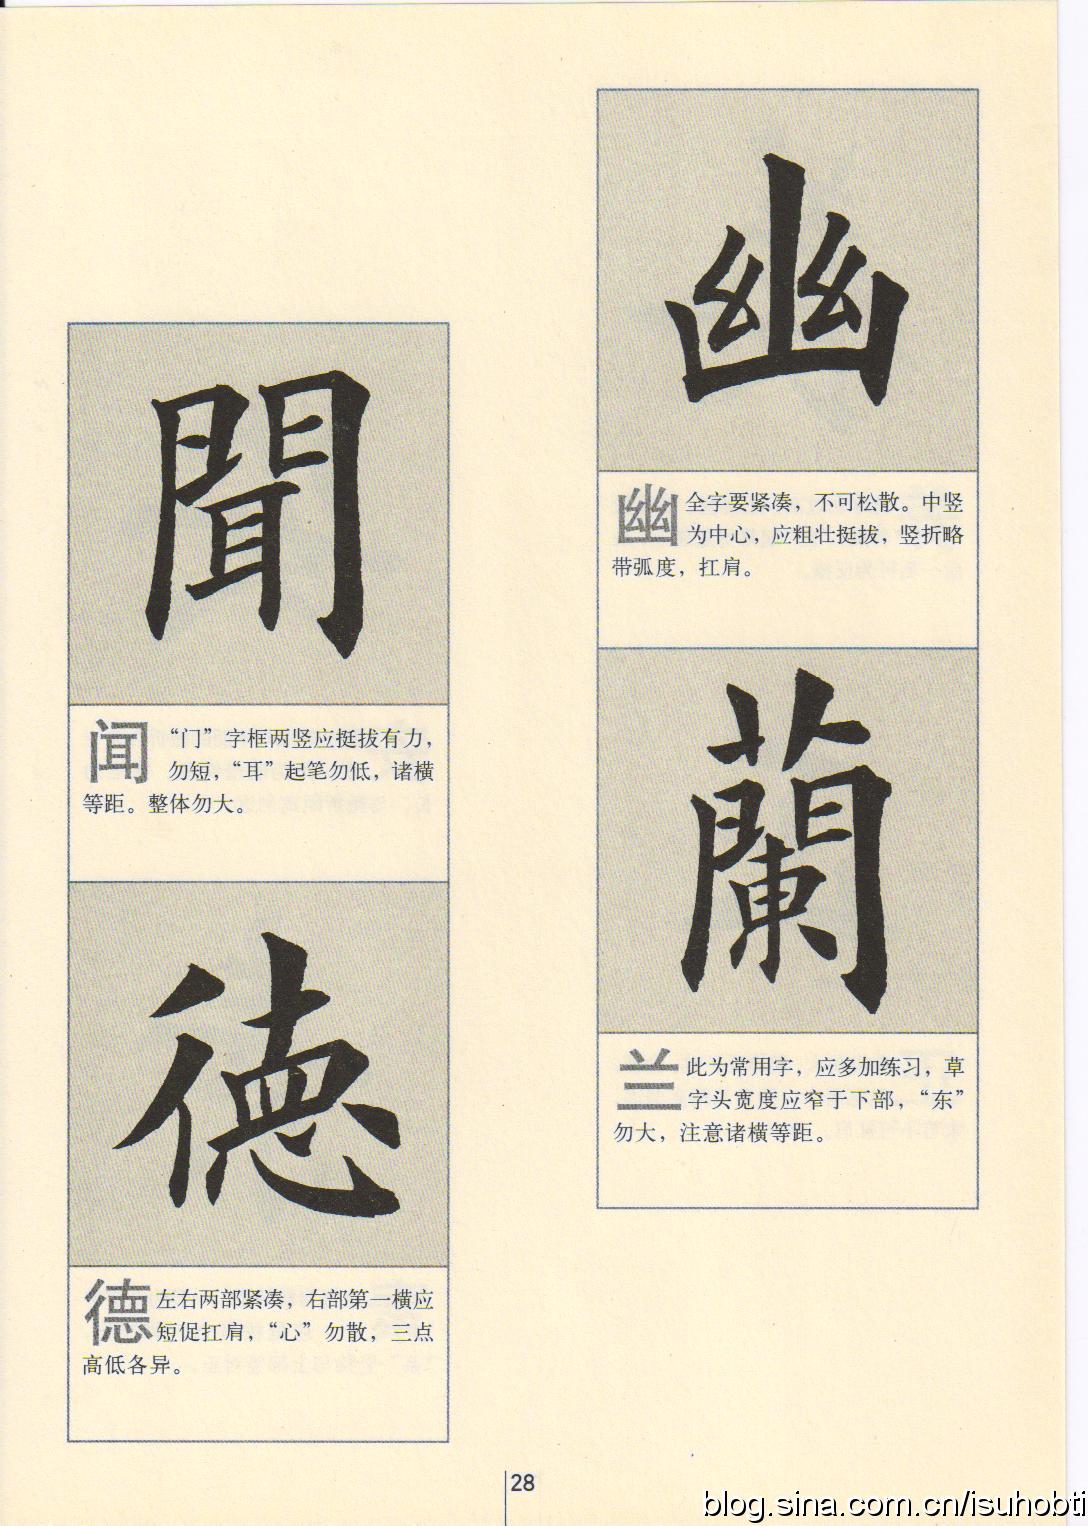 幽
幽 全字要紧凑，不可松散。中竖
为中心，应粗壮挺拔，竖折略
带弧度，扛肩。
蘭
兰 此为常用字，应多加练习，草
字头宽度应窄于下部，“东”
勿大，注意诸横等距。
聞
闻 “门”字框两竖应挺拔有力，
勿短，“耳”起笔勿低，诸横
等距。整体勿大。
德
德 左右两部紧凑，右部第一横应
短促扛肩，“心”勿散，三点
高低各异。
28
blog.sina.com.cn/isuhobti